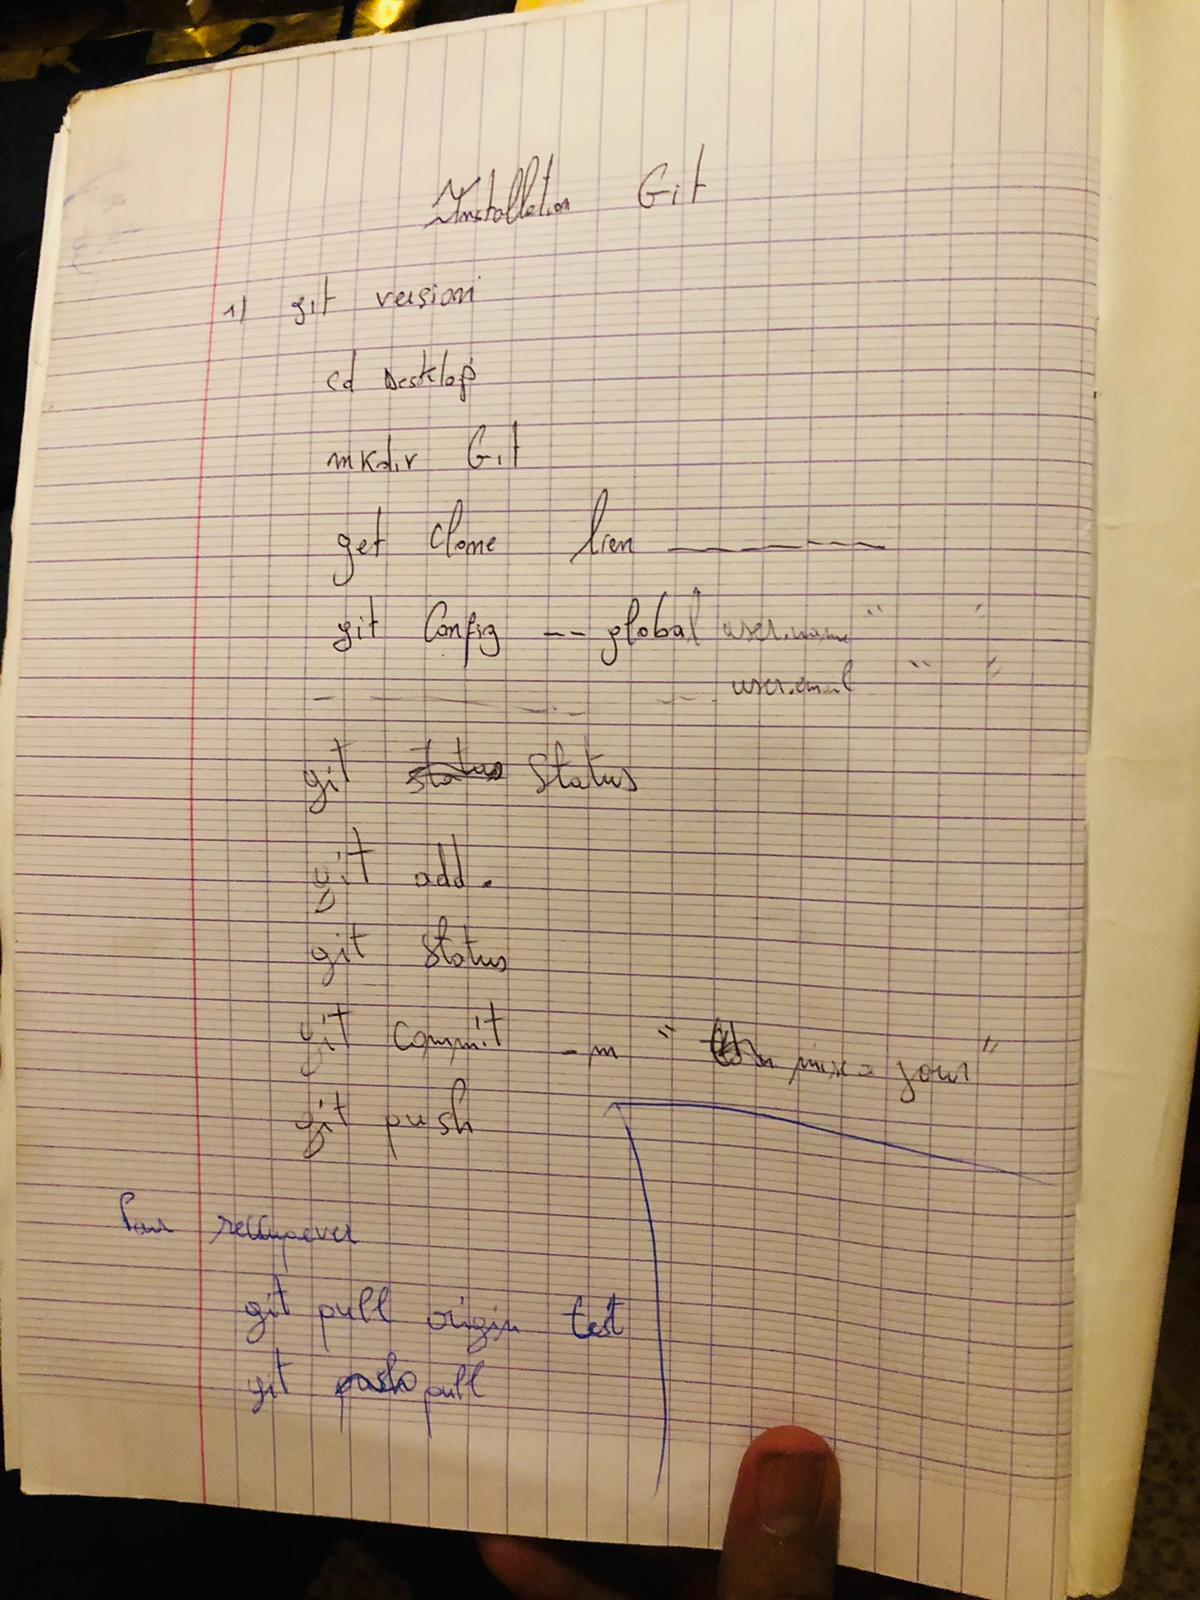 Installation Git
1) git version
cd Desktop
mkdir Git
get clone lien ----------
git Config -- global user.name " "
user.email " "
git status Status
git add .
git status
git commit -m " mise a jour"
git push
Pour reccuperer
git pull origin test
git push pull